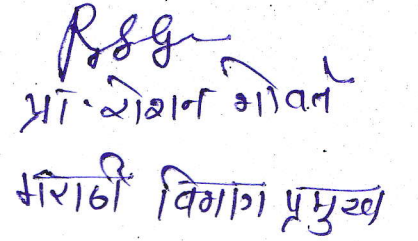 प्रा. रोशन गोवते
मराठी विभाग प्रमुख